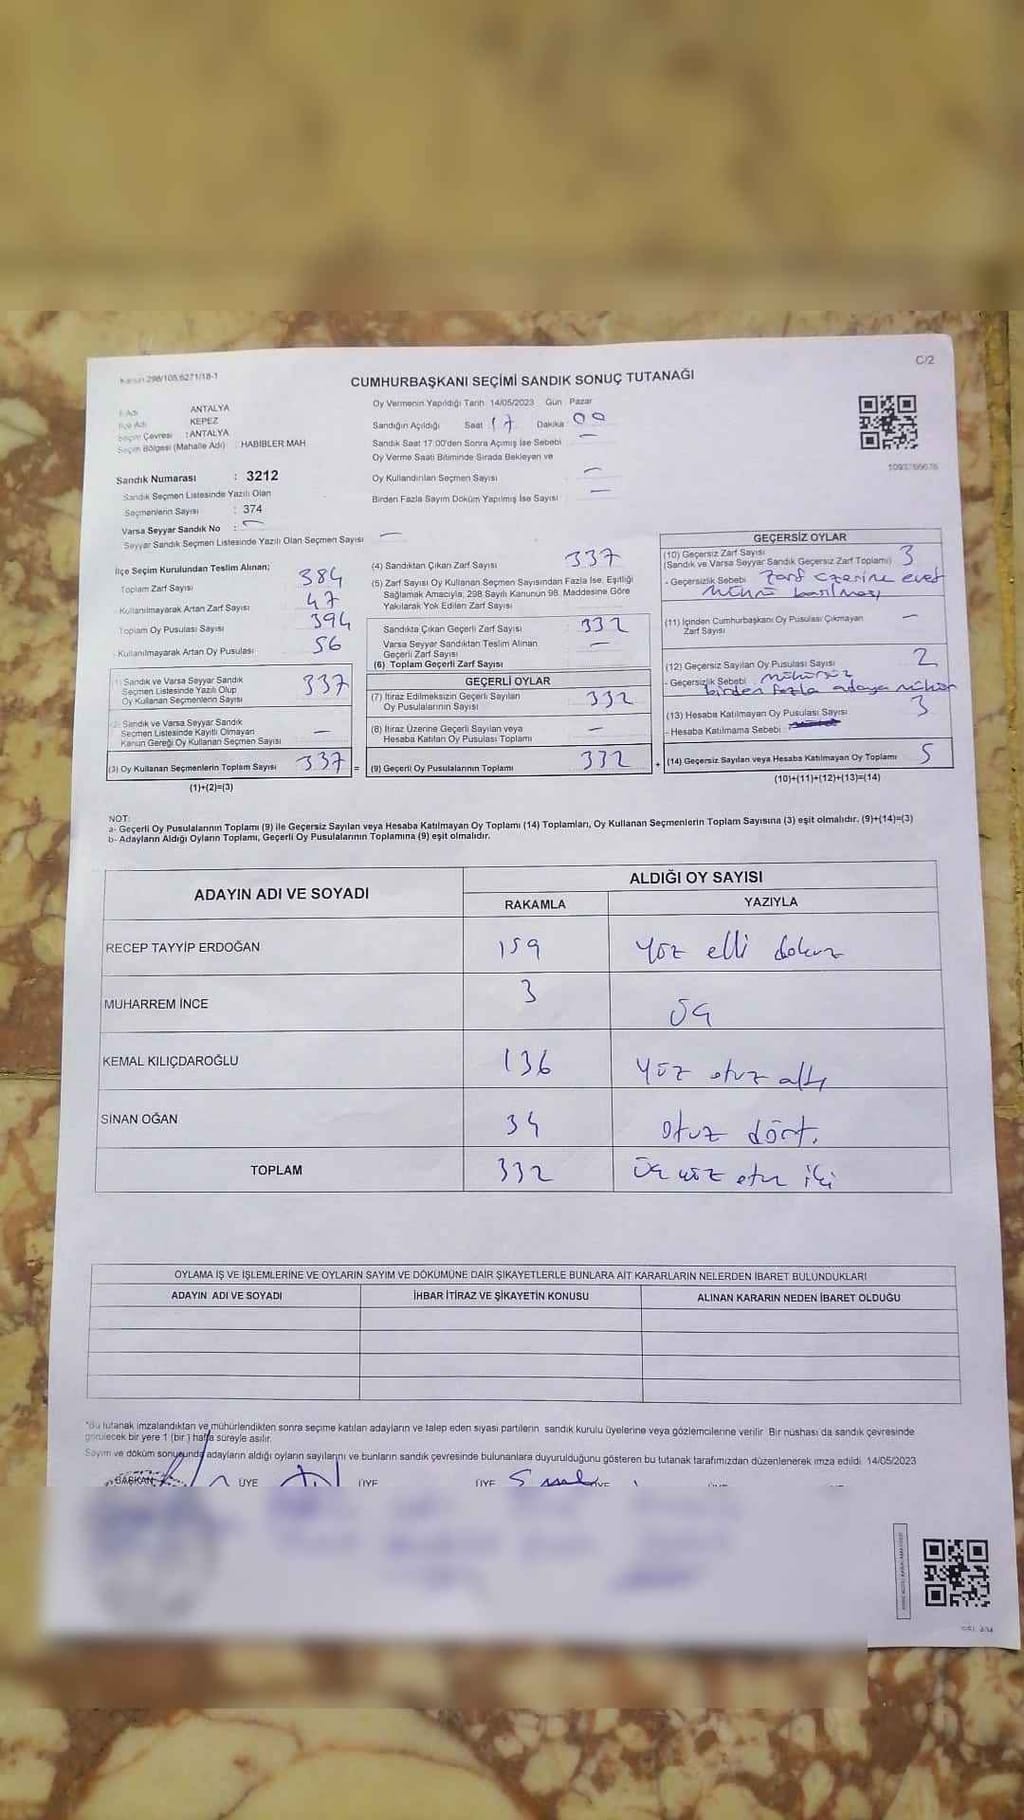 Kanun 298/105,6271/18-1
C/2
CUMHURBAŞKANI SEÇİMİ SANDIK SONUÇ TUTANAĞI
İl Adı ANTALYA
İlçe Adı KEPEZ
Seçim Çevresi : ANTALYA
Seçim Bölgesi (Mahalle Adı) : HABİBLER MAH
Sandık Numarası : 3212
Sandık Seçmen Listesinde Yazılı Olan
Seçmenlerin Sayısı : 374
Varsa Seyyar Sandık No : —
Seyyar Sandık Seçmen Listesinde Yazılı Olan Seçmen Sayısı —
Oy Vermenin Yapıldığı Tarih 14/05/2023 Gün Pazar
Sandığın Açıldığı Saat 17 Dakika 00
Sandık Saat 17:00'den Sonra Açımış İse Sebebi —
Oy Verme Saati Bitiminde Sırada Bekleyen ve
Oy Kullandırılan Seçmen Sayısı —
Birden Fazla Sayım Döküm Yapılmış İse Sayısı —
1093766676
İlçe Seçim Kurulundan Teslim Alınan;
Toplam Zarf Sayısı 384
- Kullanılmayarak Artan Zarf Sayısı 47
Toplam Oy Pusulası Sayısı 394
- Kullanılmayarak Artan Oy Pusulası 56
(1) Sandık ve Varsa Seyyar Sandık
Seçmen Listesinde Yazılı Olup
Oy Kullanan Seçmenlerin Sayısı 337
(2) Sandık ve Varsa Seyyar Sandık
Seçmen Listesinde Kayıtlı Olmayan
Kanun Gereği Oy Kullanan Seçmen Sayısı —
(3) Oy Kullanan Seçmenlerin Toplam Sayısı 337 =
(1)+(2)=(3)
(4) Sandıktan Çıkan Zarf Sayısı 337
(5) Zarf Sayısı Oy Kullanan Seçmen Sayısından Fazla İse, Eşitliği
Sağlamak Amacıyla, 298 Sayılı Kanunun 98. Maddesine Göre
Yakılarak Yok Edilen Zarf Sayısı —
Sandıkta Çıkan Geçerli Zarf Sayısı 332
Varsa Seyyar Sandıktan Teslim Alınan
Geçerli Zarf Sayısı —
(6) Toplam Geçerli Zarf Sayısı
GEÇERLİ OYLAR
(7) İtiraz Edilmeksizin Geçerli Sayılan
Oy Pusulalarının Sayısı 332
(8) İtiraz Üzerine Geçerli Sayılan veya
Hesaba Katılan Oy Pusulası Toplamı —
(9) Geçerli Oy Pusulalarının Toplamı 332 +
GEÇERSİZ OYLAR
(10) Geçersiz Zarf Sayısı
(Sandık ve Varsa Seyyar Sandık Geçersiz Zarf Toplamı) 3
- Geçersizlik Sebebi Zarf üzerine evet
mührü basılması
(11) İçinden Cumhurbaşkanı Oy Pusulası Çıkmayan
Zarf Sayısı —
(12) Geçersiz Sayılan Oy Pusulası Sayısı 2
- Geçersizlik Sebebi mühürsüz
birden fazla adaya mühür
(13) Hesaba Katılmayan Oy Pusulası Sayısı 3
- Hesaba Katılmama Sebebi
(14) Geçersiz Sayılan veya Hesaba Katılmayan Oy Toplamı 5
(10)+(11)+(12)+(13)=(14)
NOT:
a- Geçerli Oy Pusulalarının Toplamı (9) ile Geçersiz Sayılan veya Hesaba Katılmayan Oy Toplamı (14) Toplamları, Oy Kullanan Seçmenlerin Toplam Sayısına (3) eşit olmalıdır. (9)+(14)=(3)
b- Adayların Aldığı Oyların Toplamı, Geçerli Oy Pusulalarının Toplamına (9) eşit olmalıdır.
ADAYIN ADI VE SOYADI ALDIĞI OY SAYISI
RAKAMLA YAZIYLA
RECEP TAYYİP ERDOĞAN 159 Yüz elli dokuz
MUHARREM İNCE 3 üç
KEMAL KILIÇDAROĞLU 136 Yüz otuz altı
SİNAN OĞAN 34 otuz dört.
TOPLAM 332 Üç yüz otuz iki
OYLAMA İŞ VE İŞLEMLERİNE VE OYLARIN SAYIM VE DÖKÜMÜNE DAİR ŞİKAYETLERLE BUNLARA AİT KARARLARIN NELERDEN İBARET BULUNDUKLARI
ADAYIN ADI VE SOYADI İHBAR İTİRAZ VE ŞİKAYETİN KONUSU ALINAN KARARIN NEDEN İBARET OLDUĞU
*Bu tutanak imzalandıktan ve mühürlendikten sonra seçime katılan adayların ve talep eden siyasi partilerin sandık kurulu üyelerine veya gözlemcilerine verilir Bir nüshası da sandık çevresinde
görülecek bir yere 1 (bir) hafta süreyle asılır.
Sayım ve döküm sonucunda adayların aldığı oyların sayılarını ve bunların sandık çevresinde bulunanlara duyurulduğunu gösteren bu tutanak tarafımızdan düzenlenerek imza edildi 14/05/2023
BAŞKAN ÜYE ÜYE ÜYE